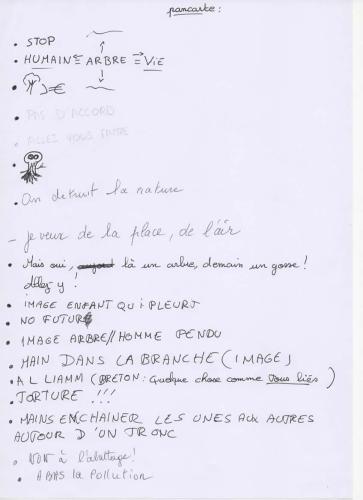 pancarte :
• STOP
• HUMAIN = ARBRE = ViE
= €
• PAS D'ACCORD
• ALLEZ VOUS FAIRE
• On detruit la nature
- je veux de la place, de l'air
• Mais oui, là un arbre, demain un gosse !
Allez y !
• iMAGE ENFANT QUi PLEURT
• NO FUTURE
• IMAGE ARBRE // HOMME PENDU
• MAIN DANS LA BRANCHE (IMAGE)
• A L LIAMM (BRETON : quelque chose comme vous liés)
• TORTURE !!!
• MAINS ENCHAINER LES UNES AUX AUTRES
AUTOUR D'UN TRONC
• NON à l'abattage !
• A BAS la Pollution